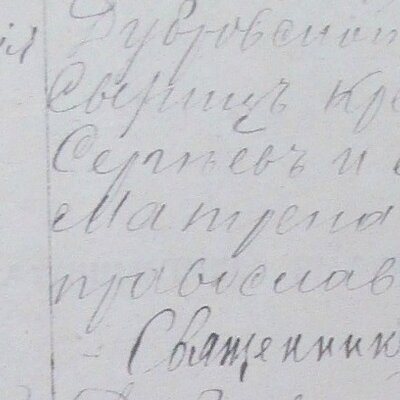 Дубровской
Сырицъ кре
Сергѣевъ и
Матрена
православ
Священник